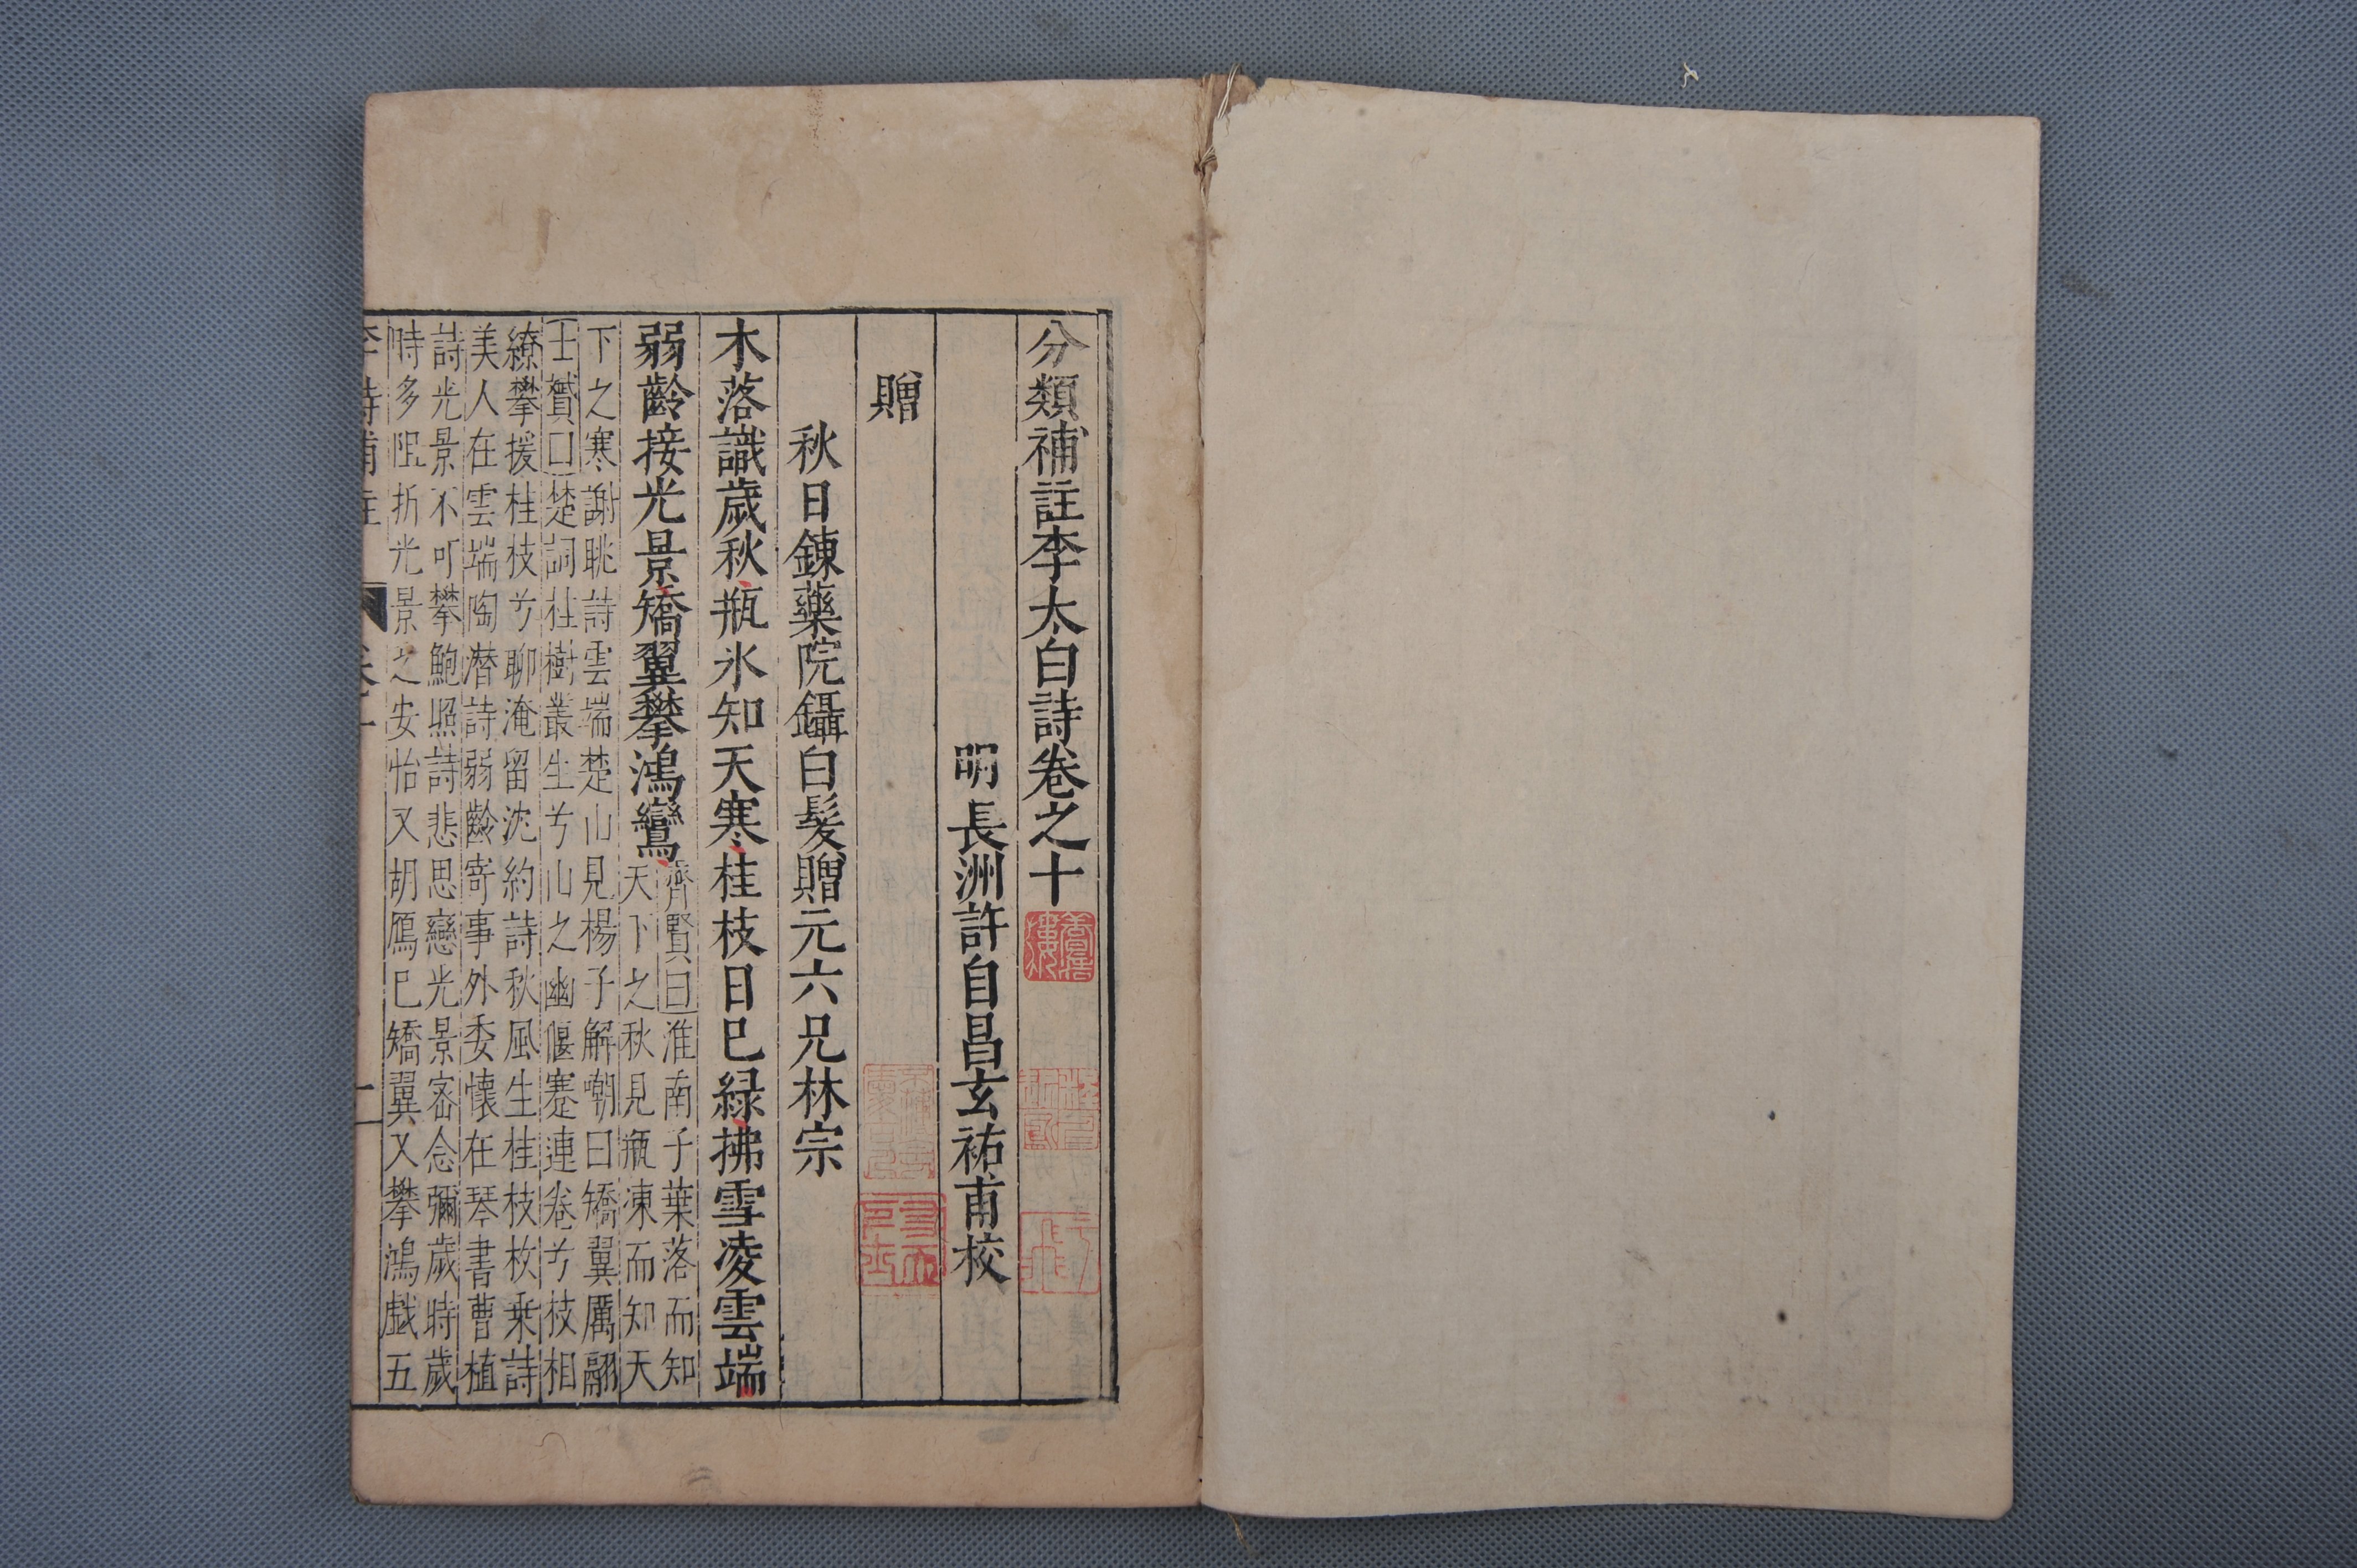 分類補註李太白詩卷之十
明長洲許自昌玄祐甫校
贈
秋日錬藥院鑷白髮贈元六兄林宗
木落識歲秋瓶氷知天寒桂枝日已綠拂雪凌雲端
弱齡接光景矯翼攀鴻鸞
齊賢曰淮南子葉落而知
天下之秋見瓶凍而知天
下之寒謝眺詩雲端楚山見楊子解嘲曰矯翼厲翮
士贇曰楚詞桂樹叢生兮山之幽偃蹇連卷兮枝相
繚攀援桂枝兮聊淹留沈約詩秋風生桂枝枚乗詩
美人在雲端陶潜詩弱齡寄事外委懷在琴書曹植
詩光景不可攀鮑照詩悲思戀光景宻念彌歲時歲
時多阻折光景之安怡又胡鴈已矯翼又攀鴻戯五